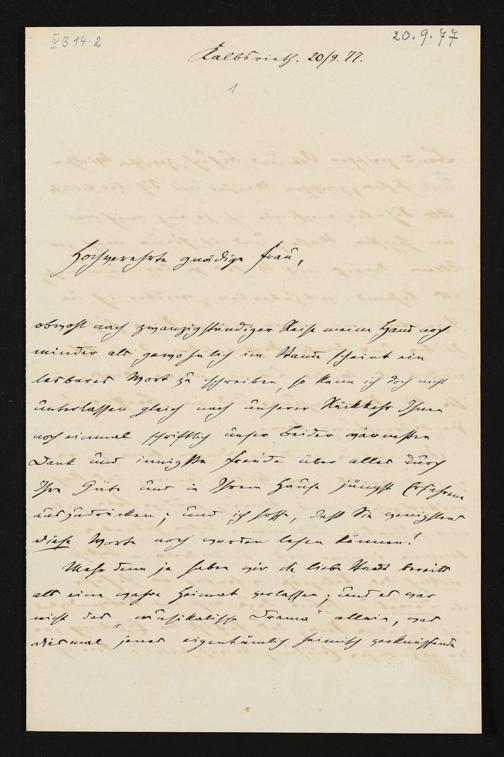 IV B 14-2
20.9.77
Kalbsrieth. 20/9. 77.
1
Hochverehrte gnädige Frau,
obwohl nach zwanzigstündiger Reise meine Hand noch
minder als gewöhnlich im Stande scheint ein
lesbares Wort zu schreiben, so kann ich doch nicht
unterlassen gleich nach unserer Rückkehr Ihnen
noch einmal schriftlich unser Beider wärmsten
Dank und innigste Freude über alles durch
Ihre Güte und in Ihrem Hause jüngst Erfahrene
auszudrücken; und ich hoffe, daß Sie wenigstens
diese Worte noch werden lesen können!
Mehr denn je haben wir die liebe Stadt bereits
als eine wahre Heimat verlassen; und es war
nicht das „musikalische Drama" allein, was
diesmal jenes eigenthümlich heimisch